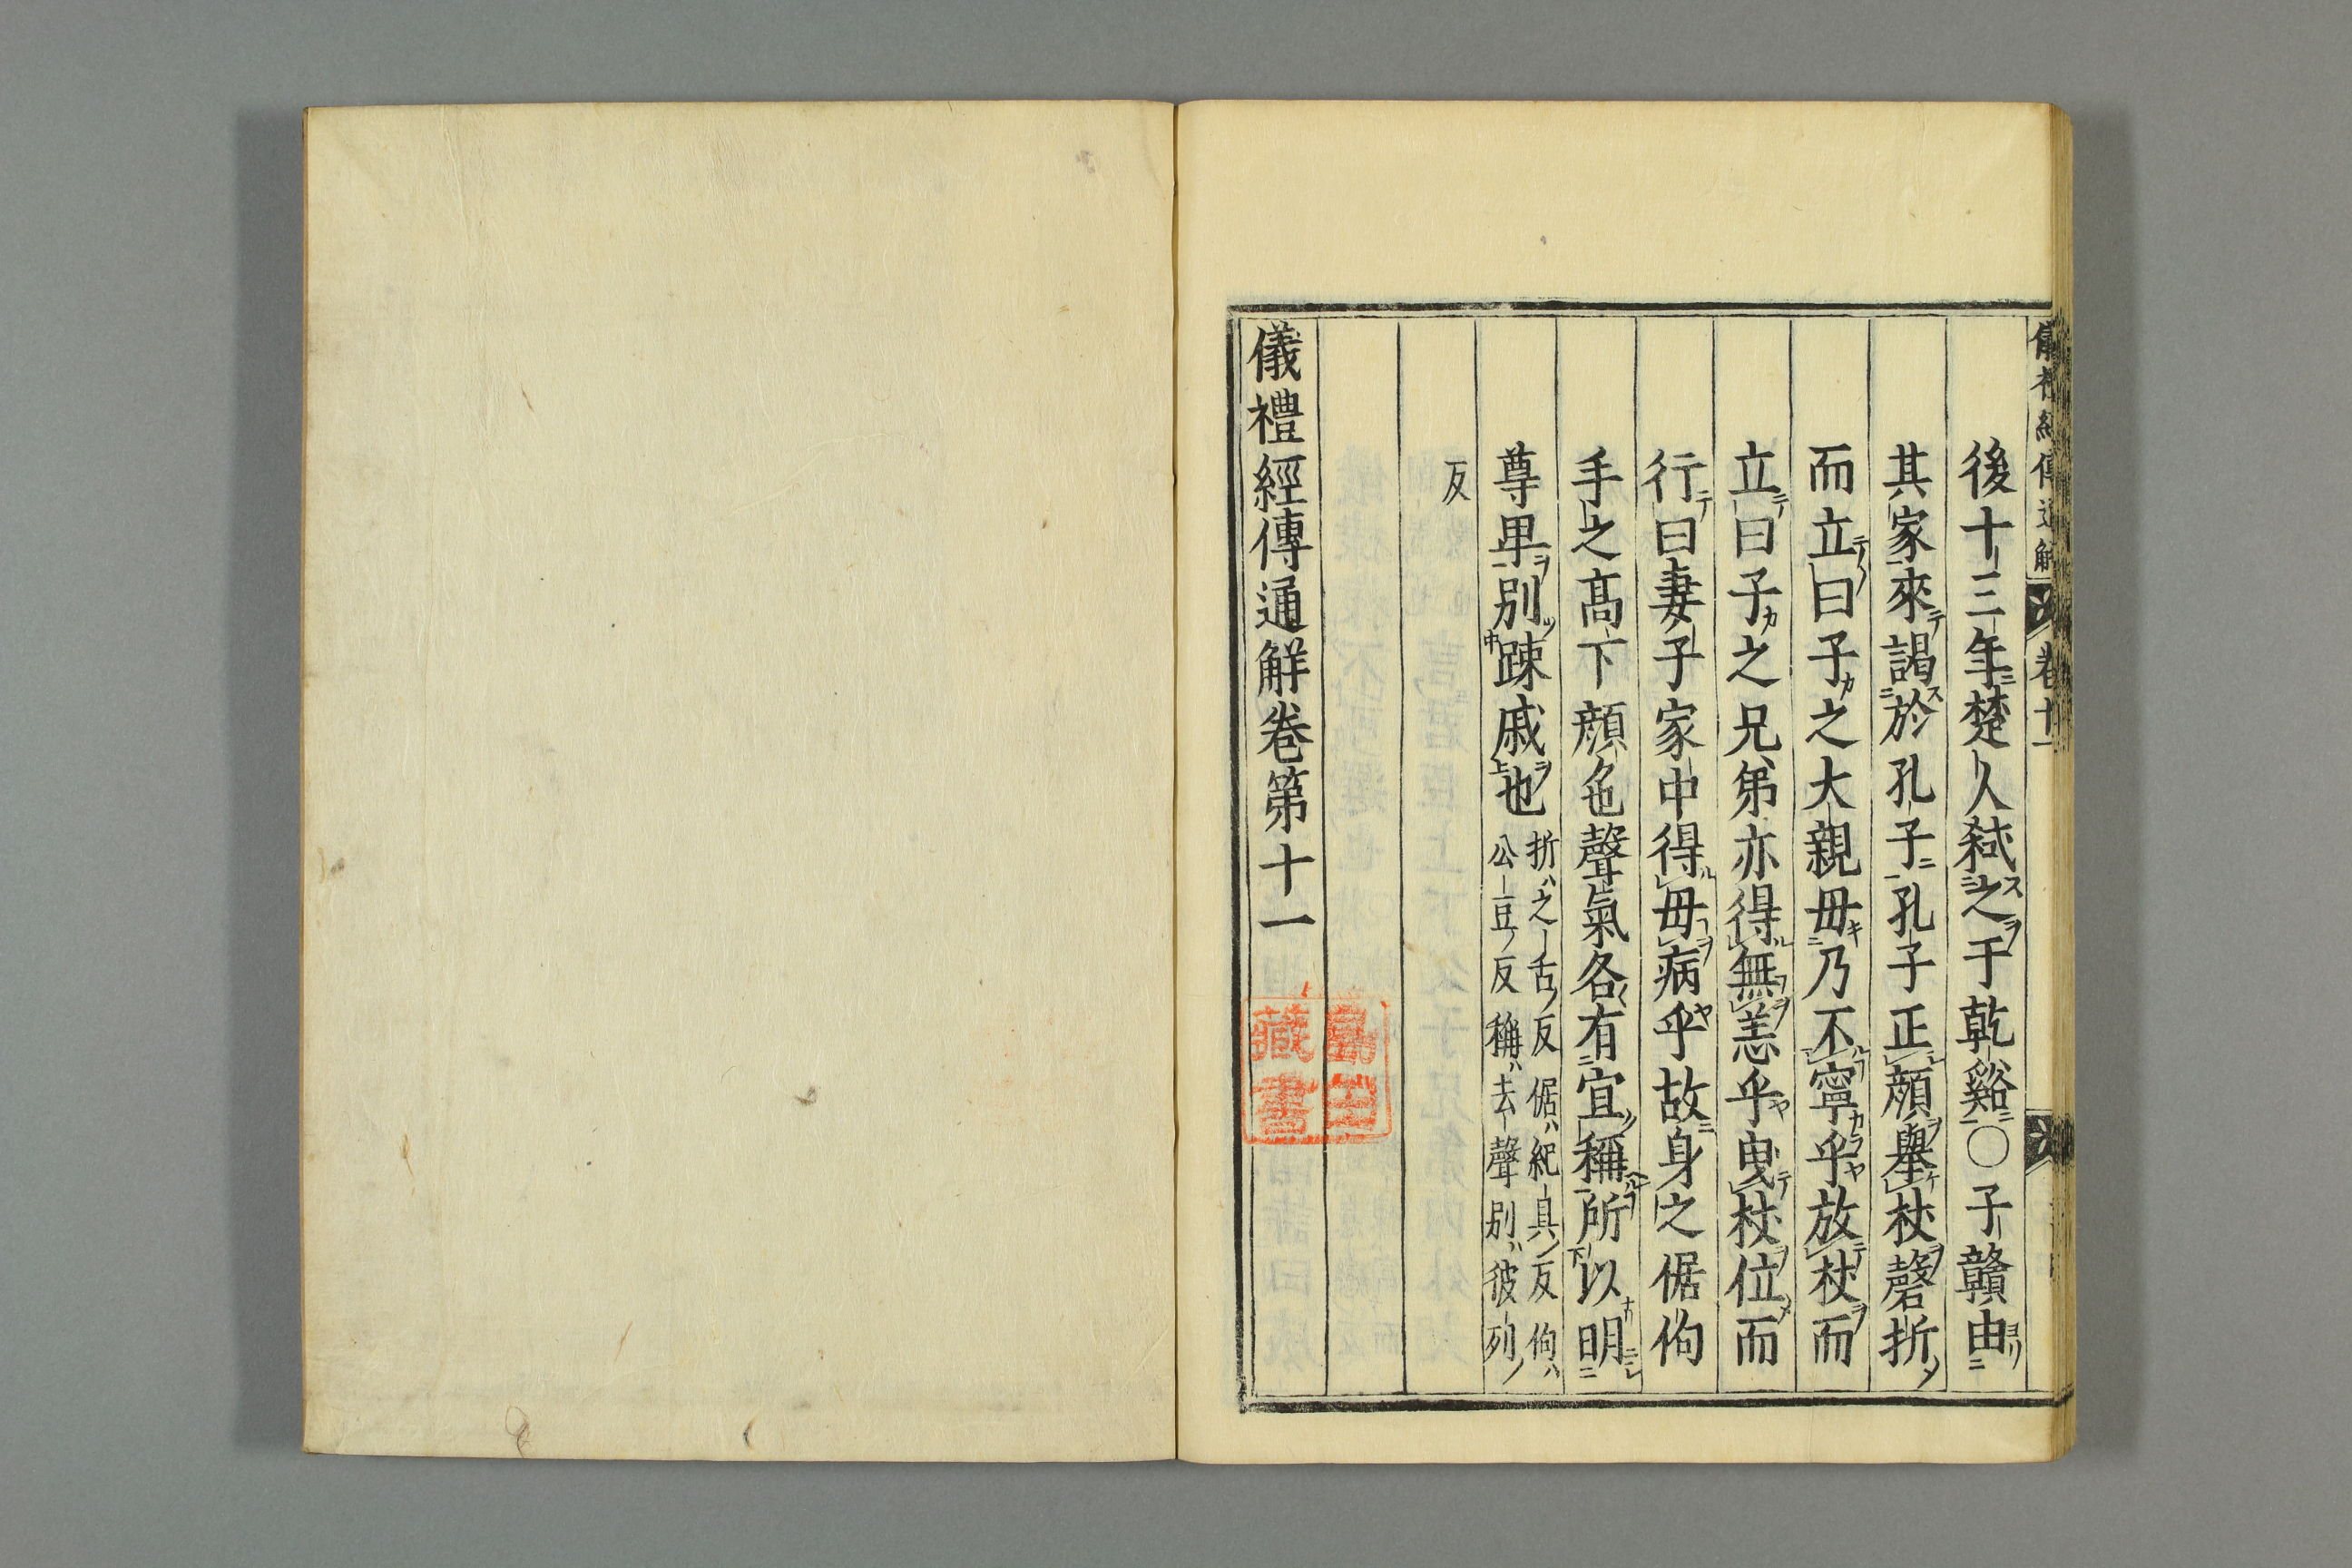 後十三年楚人弑之于乾谿○子贛由
其家來謁於孔子孔子正顔舉杖磬折
而立曰子之大親毋乃不寧乎放杖而
立曰子之兄弟亦得無恙乎曳杖位而
行曰妻子家中得毋病乎故身之倨佝
手之髙下顔色聲氣各有宜稱所以明
尊卑別疎戚也折ハ之舌ノ反倨ハ紀具ノ反佝ハ
公豆ノ反稱ハ去聲別ハ彼列ノ
反
儀禮經傳通解卷第十一
藏書